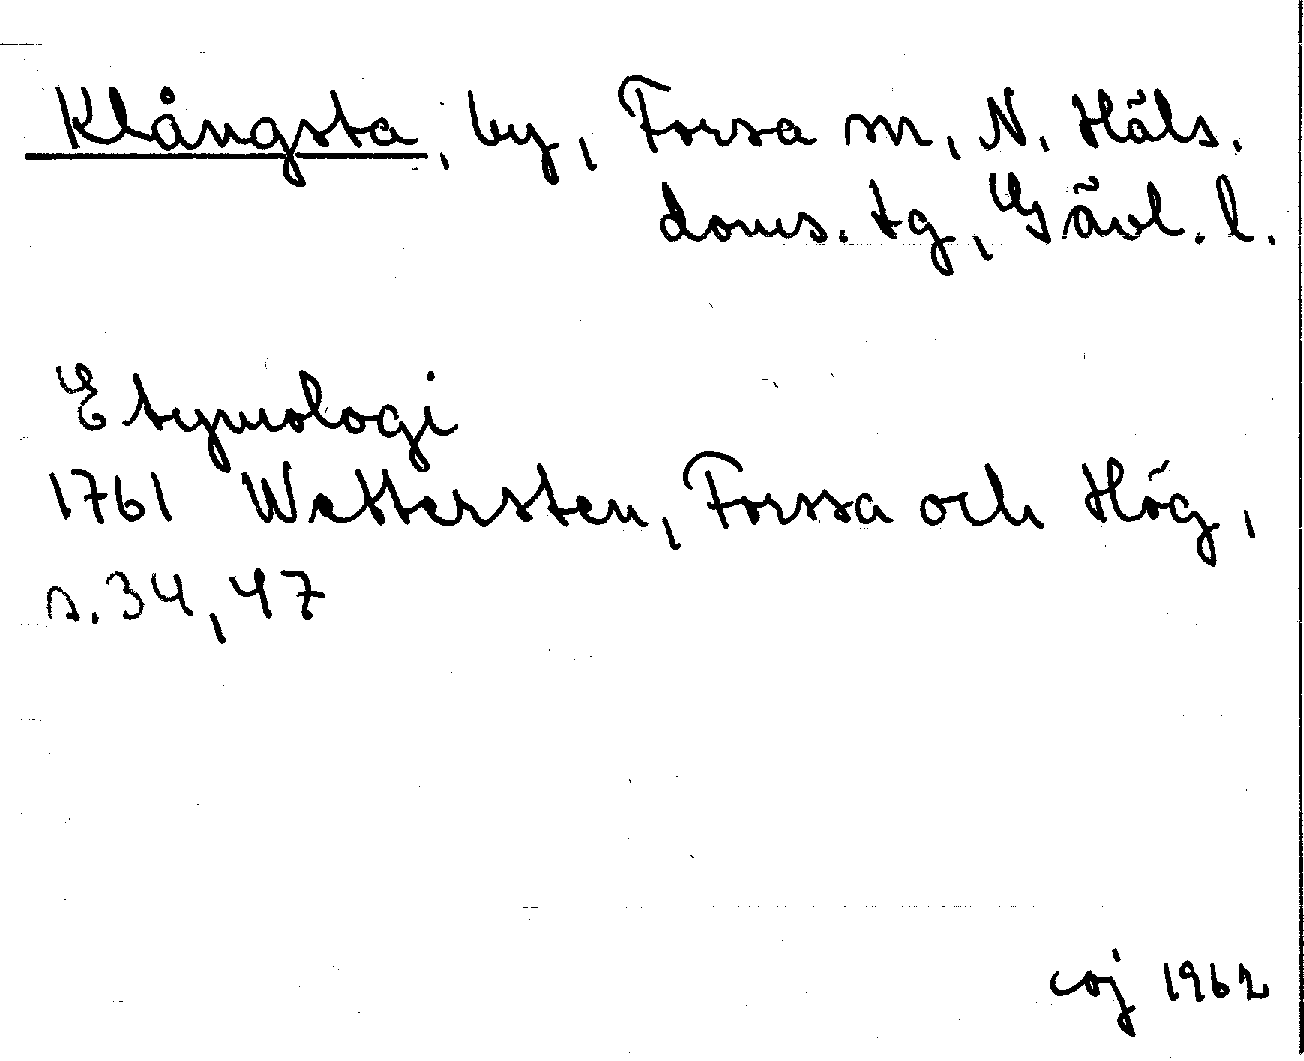 Klångsta, by, Forsa sn, N. Häls.
doms. tg, Gävl. l.
Etymologi
1761 Wettersten, Forssa och Hög,
s. 34, 47
coj 1962